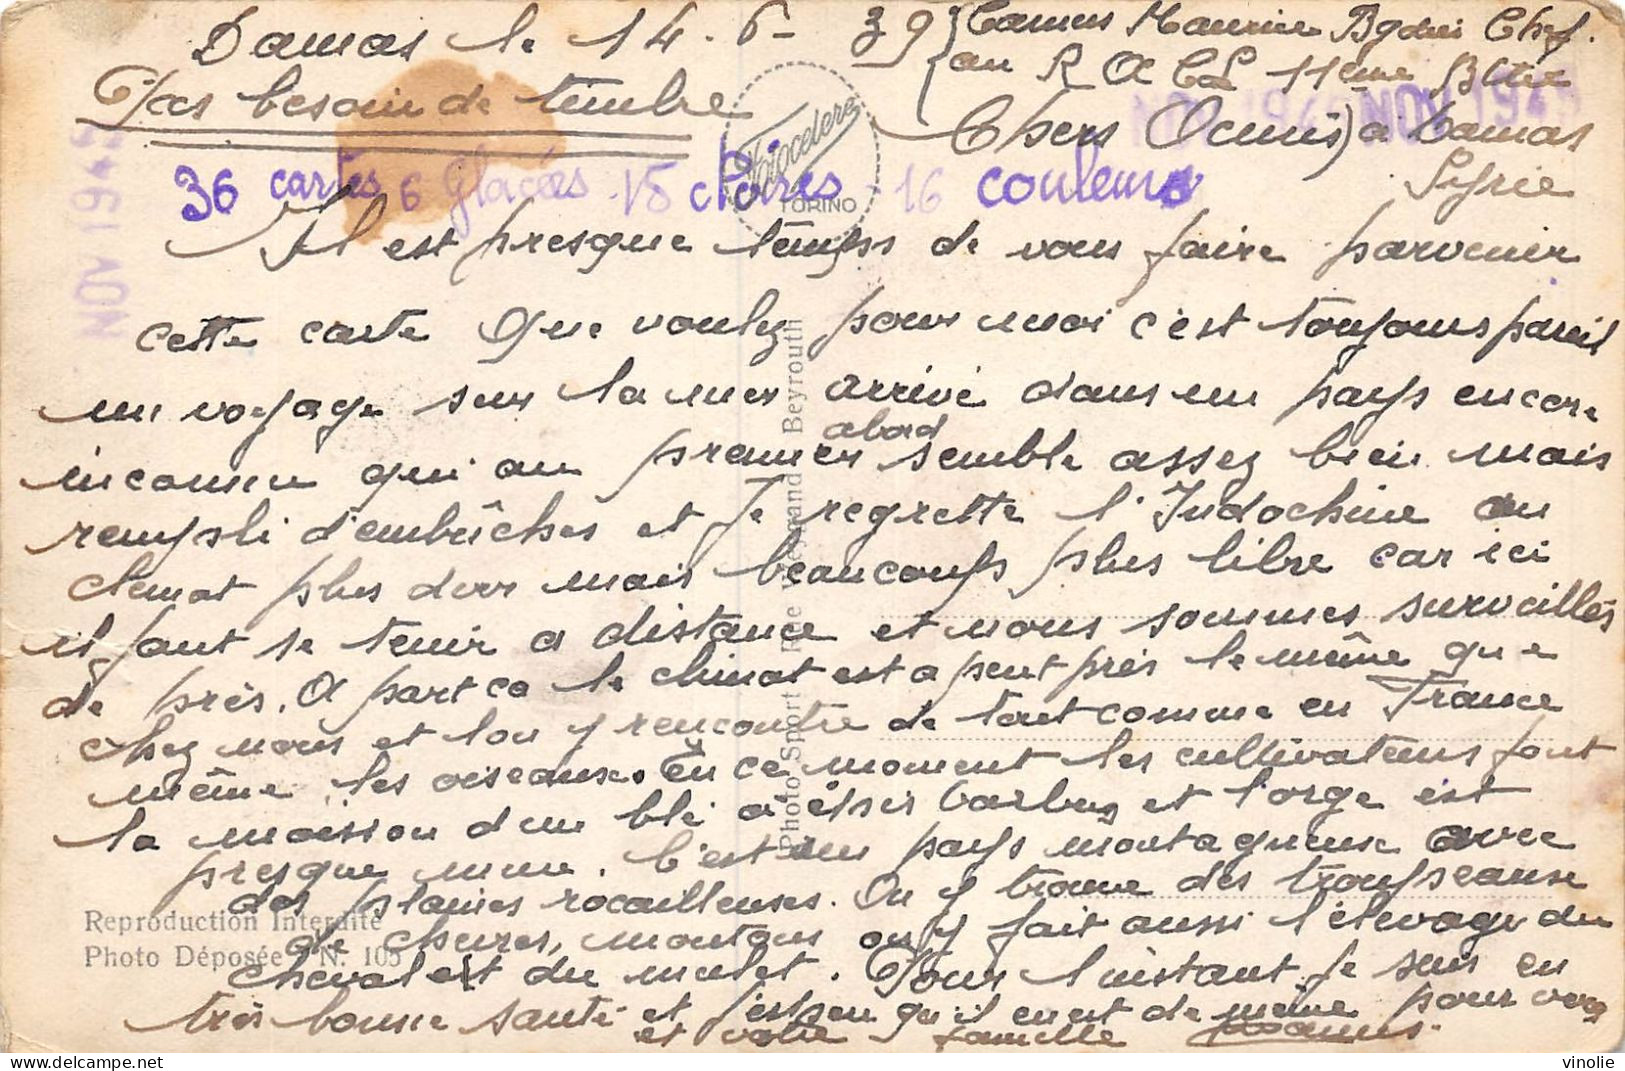 Damas le 14-6-39
Camus Maurice Bgdier Chef.
au R A C L 11ème Btie
à Damas
Syrie
Pas besoin de timbre
36 cartes 6 glacées 15 claires - 16 couleurs
NOV 1942
NOV 194
NOV 194
Fotocelere
TORINO
Il est presque temps de vous faire parvenir
cette carte Que voulez pour moi c'est toujours pareil
un voyage sur la mer arrivé dans un pays encore
inconnu qui au premier abord semble assez bien mais
rempli d'embûches et Je regrette l'Indochine au
climat plus dur mais beaucoups plus libre car ici
il faut se tenir a distance et nous sommes surveillés
de près. A part ca le climat est a peut près le même que
chez nous et lon y rencontre de tout comme en France
même les oiseaux. En ce moment les cultivateurs font
la moisson d'un blé a épis barbus et l'orge est
presque mure. C'est un pays montagneuse avec
des plaines rocailleuses. On y trouve des troupeaux
de chevres, moutons on y fait aussi l'élevage du
cheval et du mulet. Pour l'instant Je suis en
très bonne santé et J'espere qu'il en est de même pour vous
et votre famille Camus.
Photo Sport Rue Weygand Beyrouth
Reproduction Interdite
Photo Déposée N. 105
vinolie